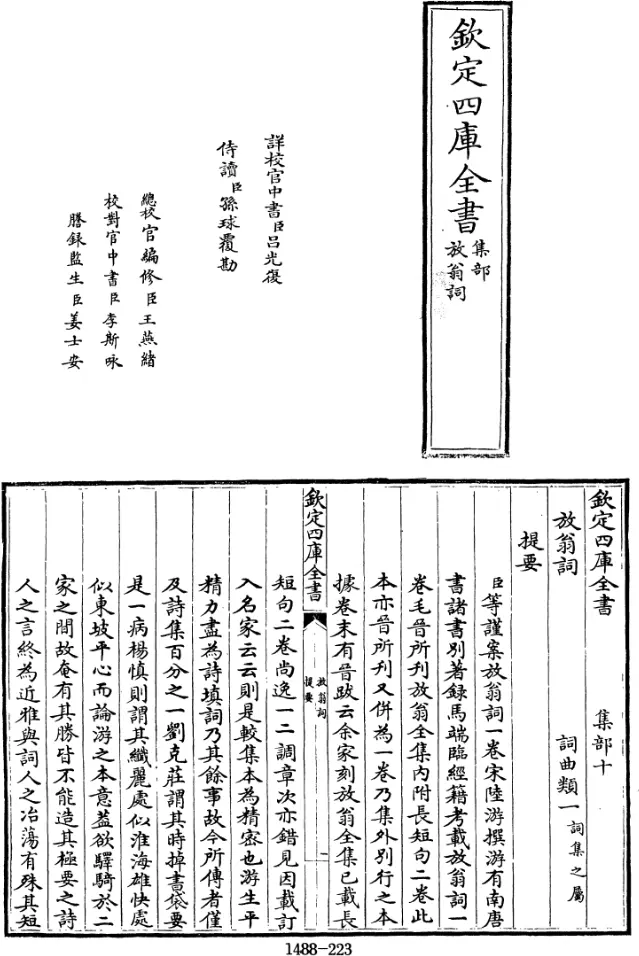 欽定四庫全書
集部
放翁詞
詳校官中書臣呂光復
侍讀臣孫球覆勘
總校官編修臣王燕緒
校對官中書臣李斯咏
謄録監生臣姜士安
欽定四庫全書 集部十
放翁詞 詞曲類一詞集之屬
提要
臣等謹案放翁詞一卷宋陸游撰游有南唐
書諸書別著録馬端臨經籍考載放翁詞一
卷毛晉所刊放翁全集内附長短句二卷此
本亦晉所刊又併為一卷乃集外別行之本
據卷末有晉跋云余家刻放翁全集已載長
欽定四庫全書
放翁詞
提要
一
短句二卷尚逸一二調章次亦錯見因載訂
入名家云云則是較集本為精宻也游生平
精力盡為詩填詞乃其餘事故今所傳者僅
及詩集百分之一劉克莊謂其時掉書袋要
是一病楊慎則謂其纎麗處似淮海雄快處
似東坡平心而論游之本意葢欲驛騎於二
家之間故奄有其勝皆不能造其極要之詩
人之言終為近雅與詞人之冶蕩有殊其短
1488-223